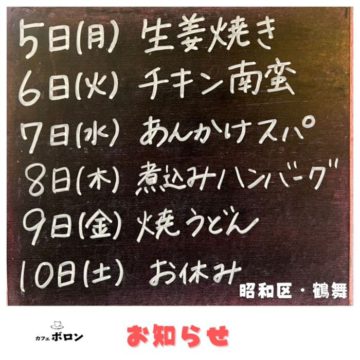 5日(月) 生姜焼き
6日(火) チキン南蛮
7日(水) あんかけスパ
8日(木) 煮込みハンバーグ
9日(金) 焼うどん
10日(土) お休み
昭和区・鶴舞
カフェ ボロン
お知らせ